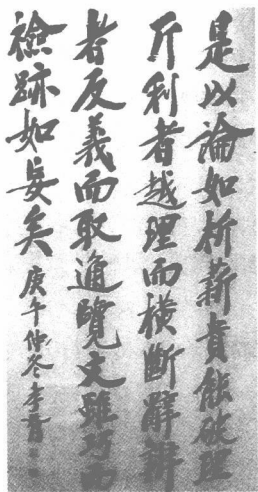 是以論如析薪貴能破理
斤利者越理而橫斷辭辨
者反義而取通覽文雖巧而
檢跡如妄矣庚午仲冬李